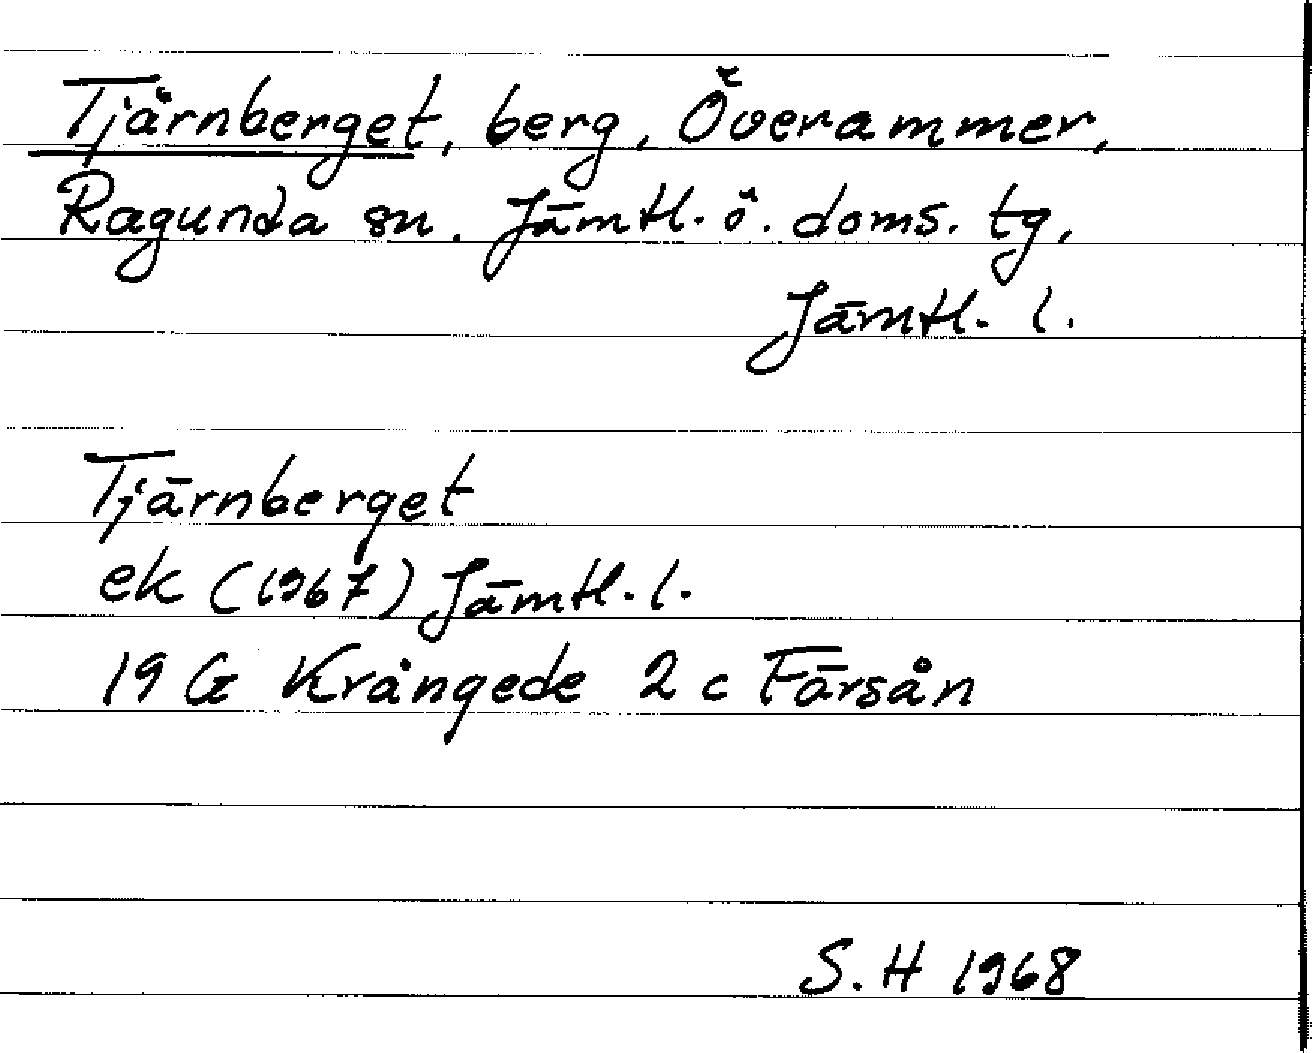 Tjärnberget, berg, Överammer,
Ragunda sn. Jämtl. ö. doms. tg,
Jämtl. l.
Tjärnberget
ek (1967) Jämtl. l.
19 G Krångede 2 c Färsån
S. H 1968